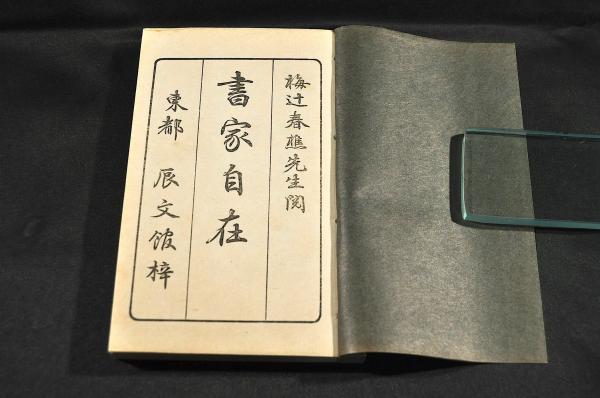 梅辻春樵先生閲
書家自在
東都 辰文館梓